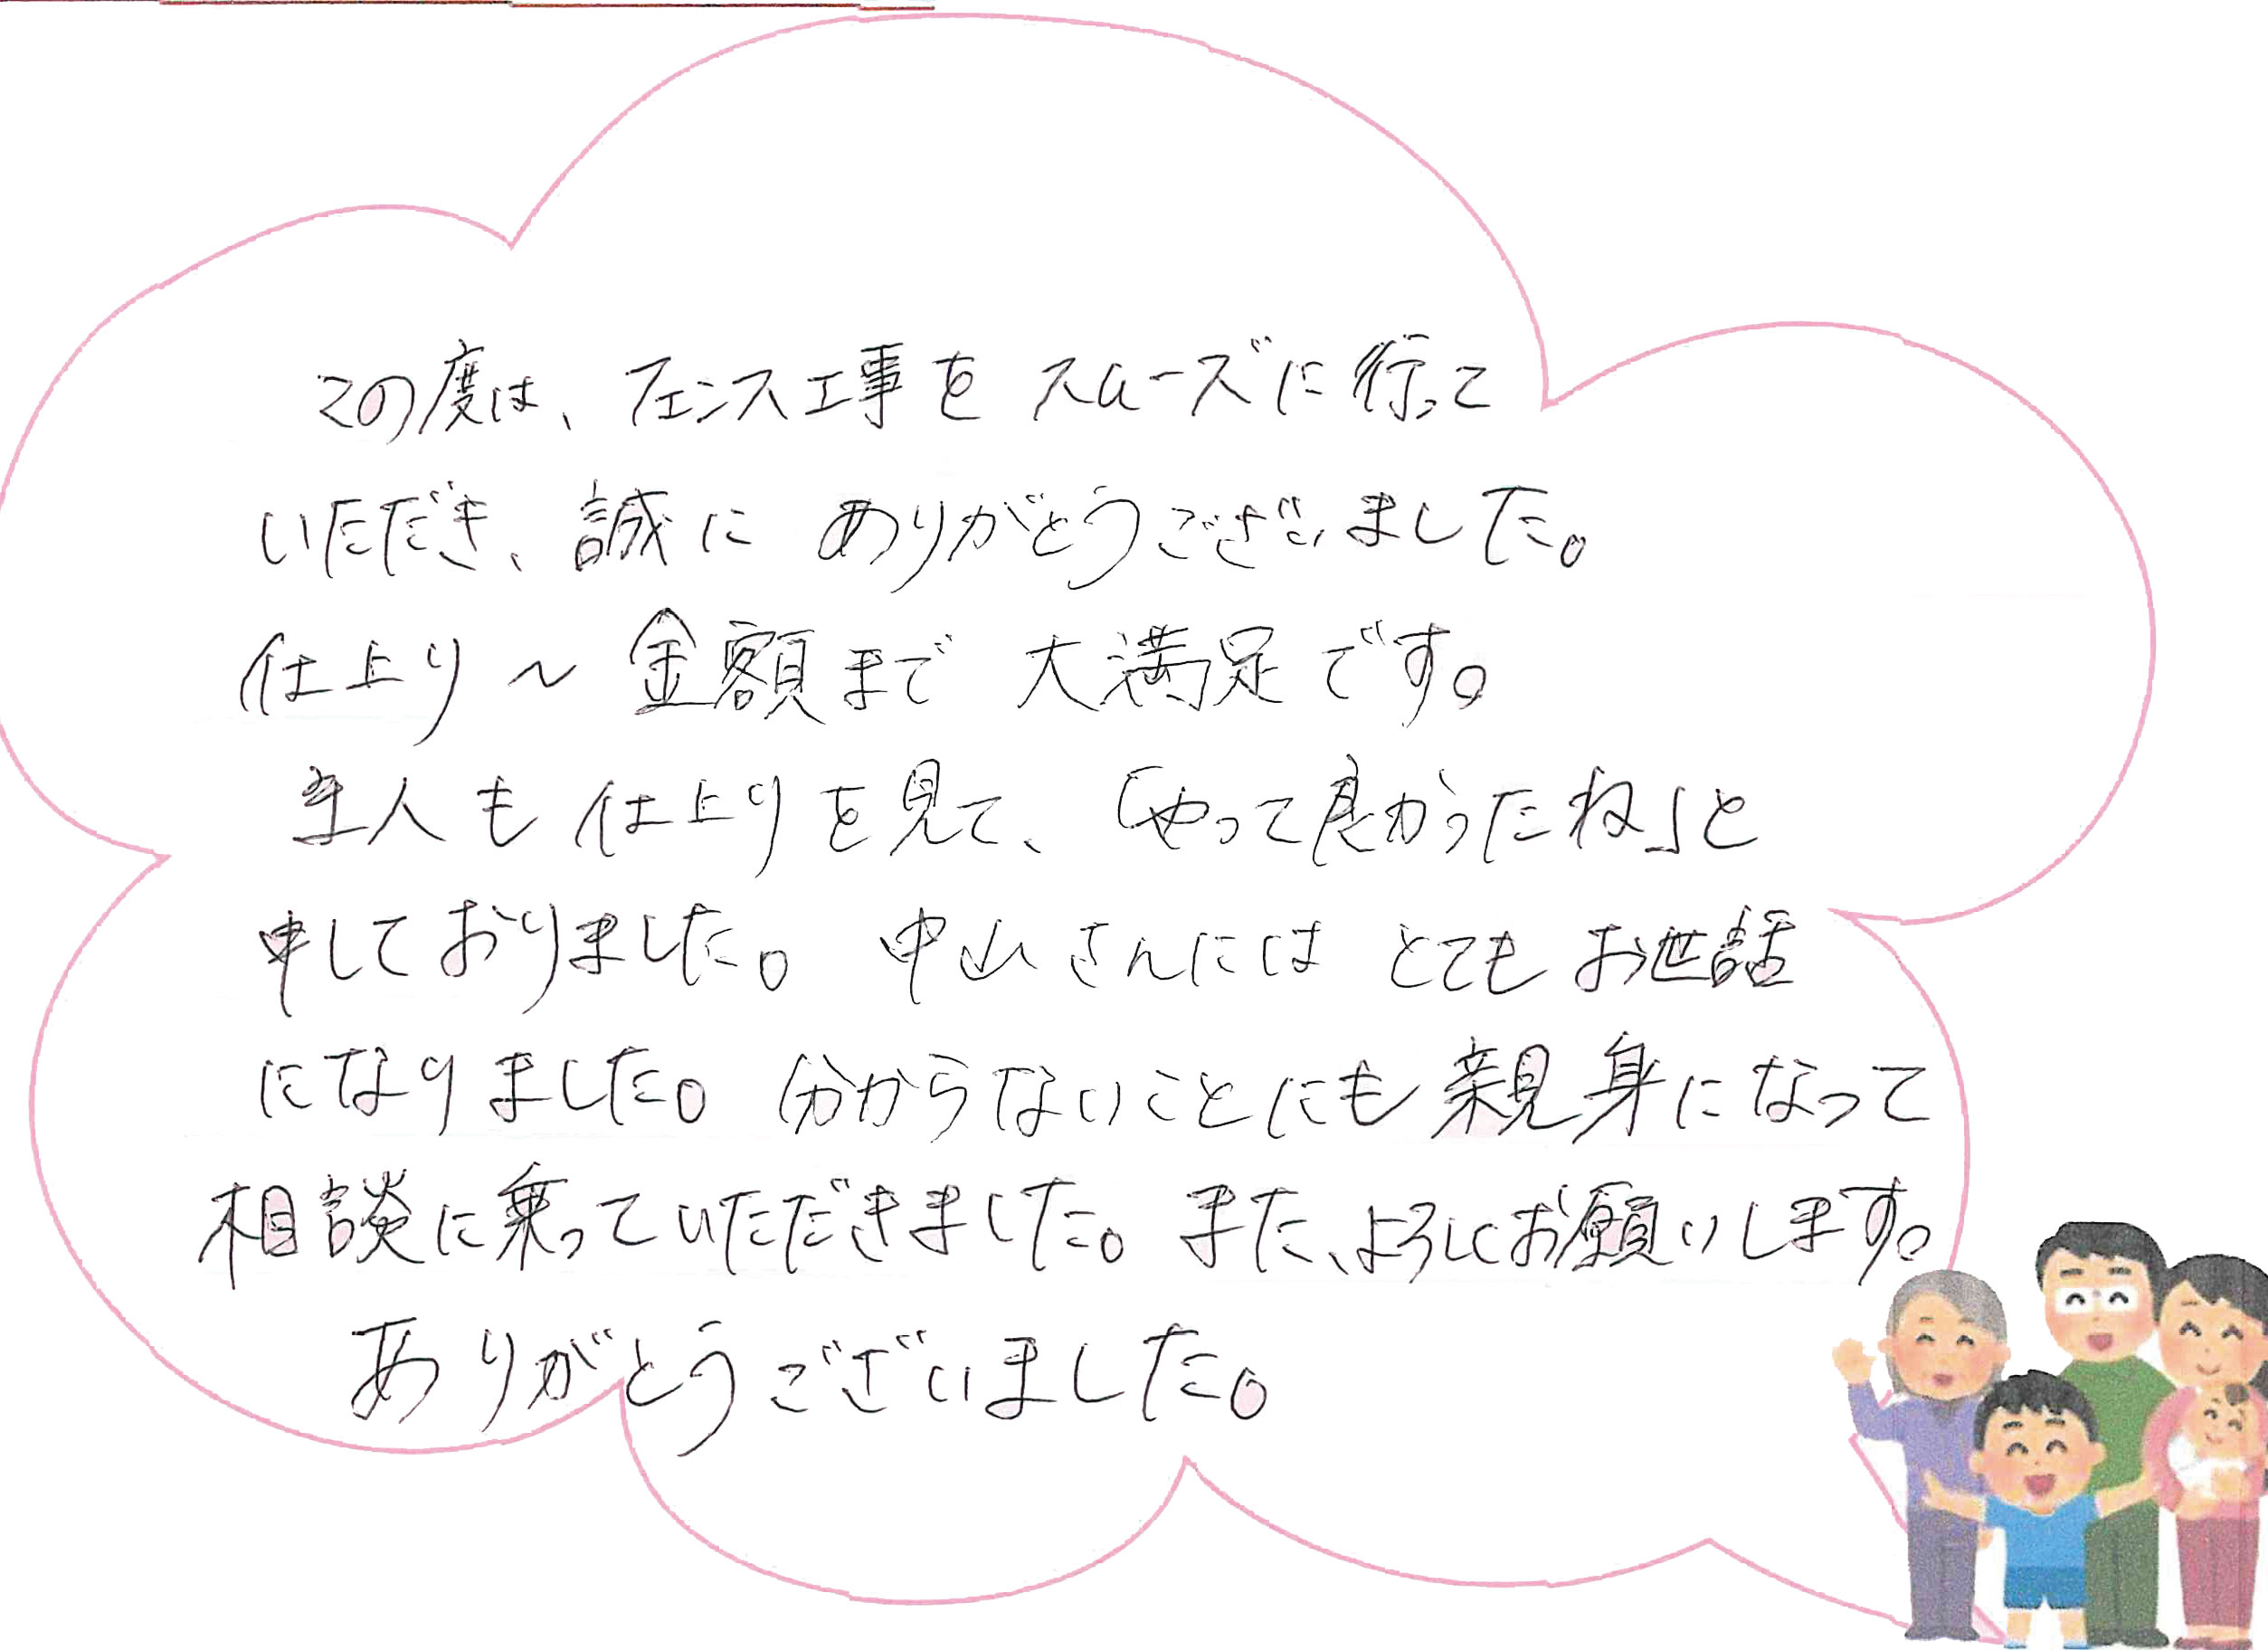 この度は、フェンス工事を スムーズに行って
いただき、誠に ありがとうございました。
仕上り～金額まで 大満足です。
主人も仕上りを見て、「やって良かったね」と
申しておりました。 中山さんには とてもお世話
になりました。分からないことにも親身になって
相談に乗っていただきました。また、よろしくお願いします。
ありがとうございました。